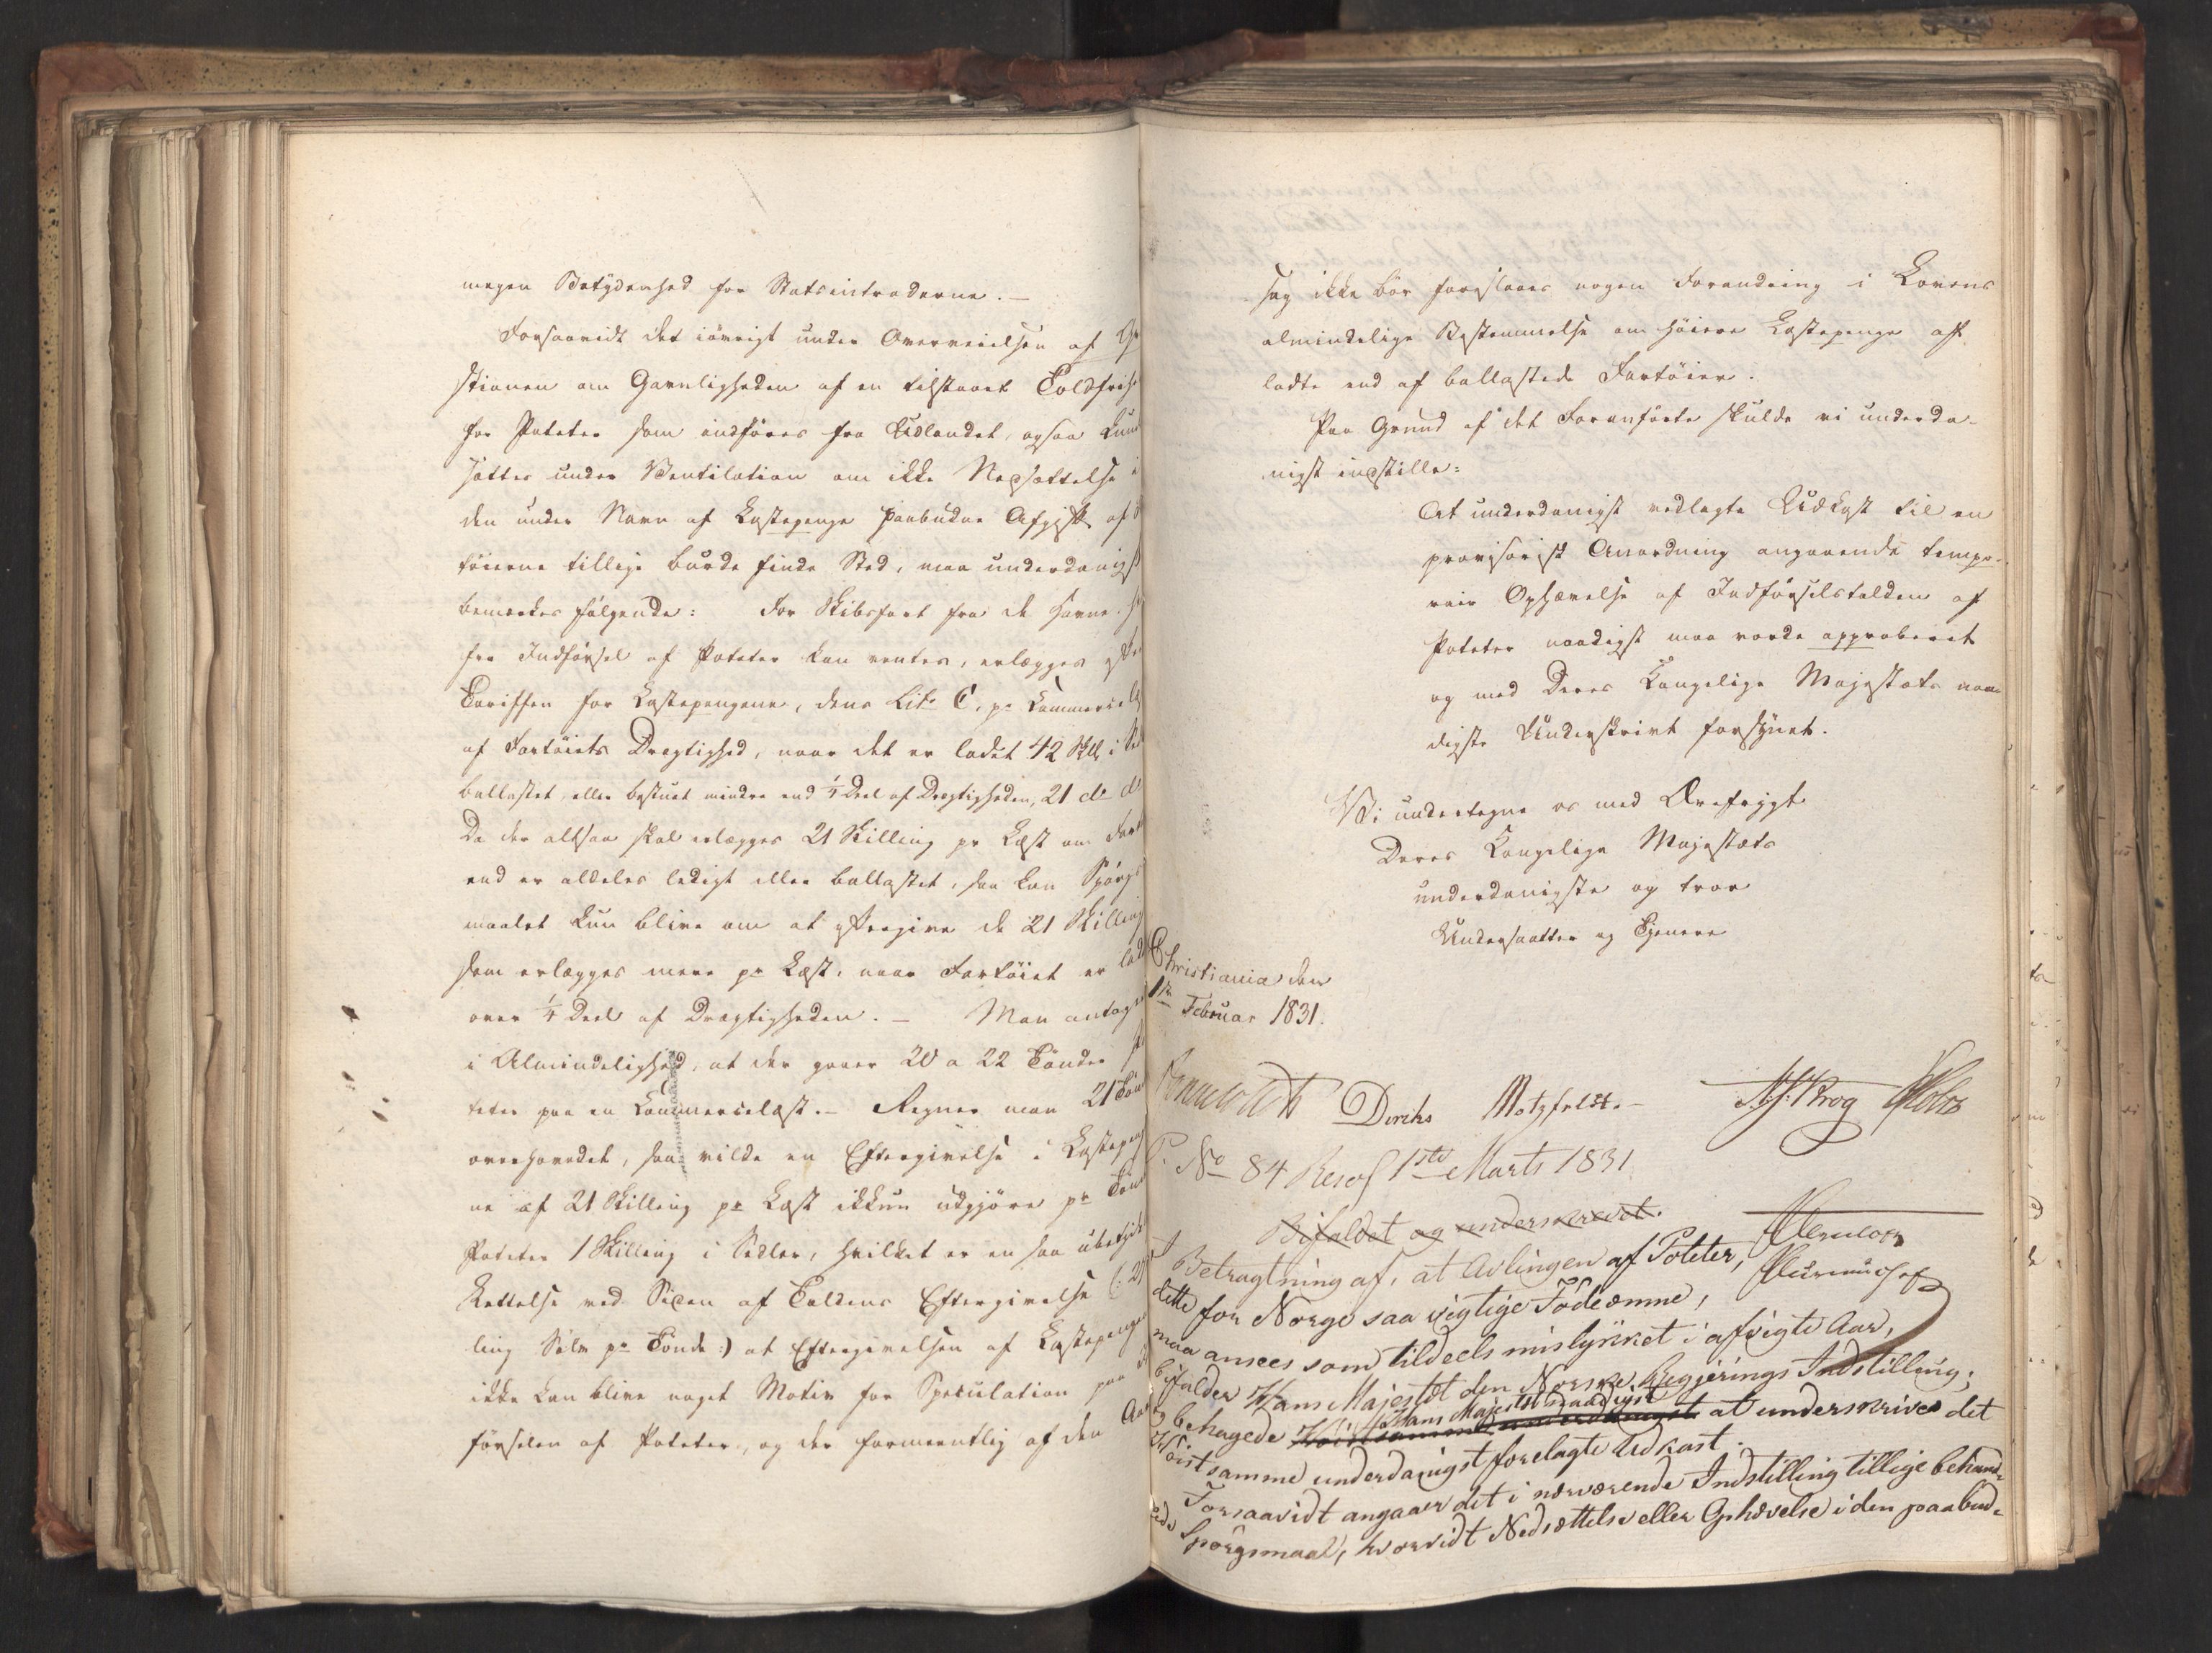 megen Betydenhed for Statsintraderne. —
Forsaavidt det iøvrigt under Overveielsen af
stionen om Gavnligheden af en tilstaaet Toldfrihe
for Poteter som indføres fra Udlandet, ogsaa kund
sættes under Ventilation om ikke Nedsættelse i
den under Navn af Lastepenge paabudne Afgift af
tøierne tillige burde finde Sted, maa underdanigst
bemærkes følgende: For Skibsfart fra de Havne,
fra Indførsel af Poteter kan ventes, erlægges efter
Tariffen for Lastepengene, dens Litr C, pr Commercel
af Fartøiets Drægtighed, naar det er ladet 42 Skll i
ballastet eller bestuet mindre end ¼ Deel af Drægtigheden, 21 do d
Da der altsaa skal erlægges 21 Skilling pr Læst om Fart
end er aldeles ledigt eller ballastet, saa kan Spørgs
maalet kun blive om at eftergive de 21 Skilling
som erlægges mere pr Læst, naar Fartøiet er lad
over ¼ Deel af Drægtigheden. — Man antager
i Almindelighed, at der gaaer 20 a 22 Tønder
teter paa en Commercelæst. — Regner man 21 Tøn
overhovedet, saa vilde en Eftergivelse i Lastepeng
ne af 21 Skilling pr Læst ikkun udgjøre pr Tønd
Poteter 1 Skilling i Sedler, hvilket er en saa ubetyde
Lettelse ved Siden af Toldens Eftergivelse (: 24
ling Sølv pr Tønde :) at Eftergivelsen af Lastepenge
ikke kan blive noget Motiv for Speculation paa
førselen af Poteter, og der formeentlig af den Aar
sag ikke bør foreslaaes nogen Forandring i Lovens
almindelige Bestemmelse om høiere Lastepenge af
ladte end af ballastede Fartøier.
Paa Grund af det Foranførte skulde vi underda-
nigst indstille:
At underdanigst vedlagte Udkast til en
provisorisk Anordning angaaende tempo-
rair Ophævelse af Indførselstolden af
Poteter naadigst maa vorde approberet
og med Deres Kongelige Majestæts naa-
digste Underskrivt forsynet.
Vi undertegne os med Ærefrygt
Deres Kongelige Majestæts
underdanigste og troe
Undersaatter og Tjenere
Christiania den
1ste Februar 1831.
Diriks Motzfeldt. Krog
P. No 84 Resol 1ste Marts 1831
Bifaldet og underskrevet.
I Betragtning af, at Avlingen af Poteter,
dette for Norge saa vigtige Fødeæmne,
maa ansees som tildeels mislykket i afvigte Aar,
bifalder Hans Majestæt den Norske Regjerings Indstilling;
Hans Majestæt naadigst
og behagede Høistsamme underdanigst at underskrive det
Høistsamme underdanigst forelagte Udkast.
Forsaavidt angaaer det i nærværende Indstilling tillige behand-
lede Spørgsmaal, hvorvidt Nedsættelse eller Ophævelse i den paabud-